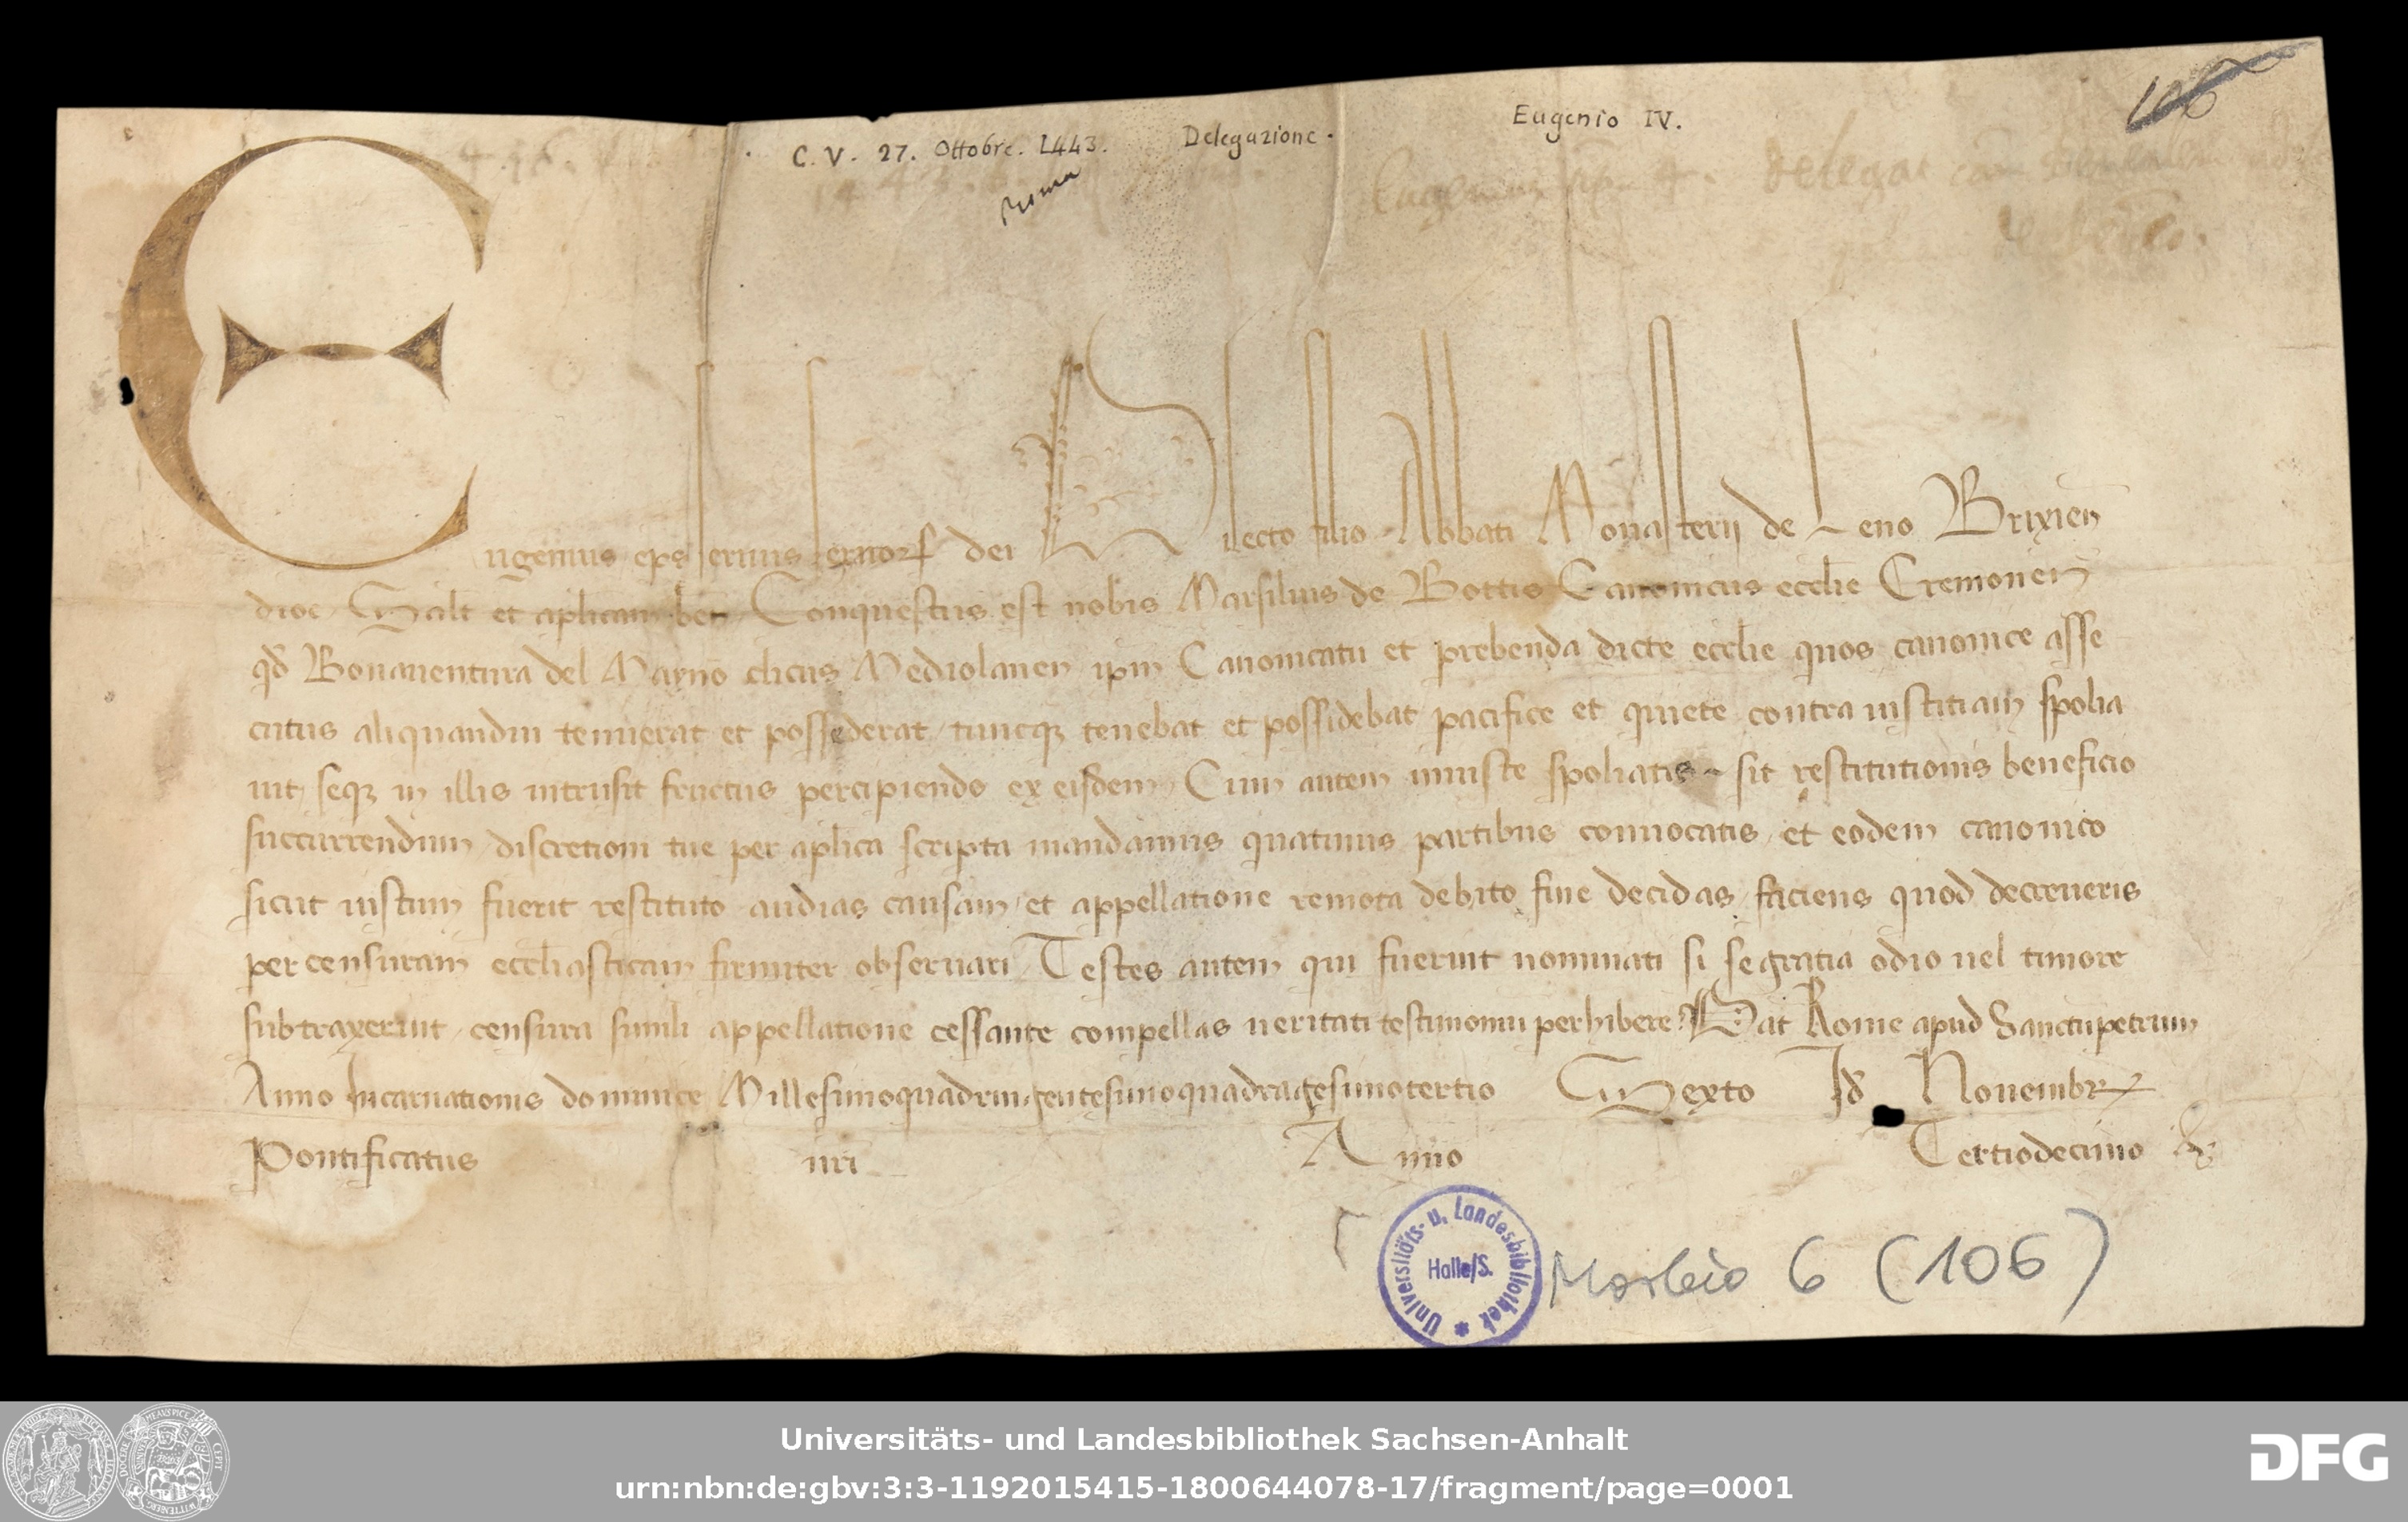 106
C. V. 27. Ottobre. 1443. Delegazione. Eugenio IV.
Roma
Eugenius delegat
Eugenius eps seruus seruor dei Dilecto filio Abbati Monasterij de Leno Brixien
dioc Salt et aplicam ben Conquestus est nobis Marsilius de Bottis Canonicus ecclie Cremonen
qd Bonauentura del Mayno clicus Mediolanen ipm Canonicatu et prebenda dicte ecclie quos canonice asse
cutus aliquandiu tenuerat et possederat tuncqz tenebat et possidebat pacifice et quiete contra iustitiam spolia
uit seqz in illis intrusit fructus percipiendo ex eisdem Cum autem iniuste spoliatis sit restitutionis beneficio
succurrendum discretioni tue per aplica scripta mandamus quatinus partibus conuocatis et eodem canonico
sicut iustum fuerit restituto audias causam et appellatione remota debito fine decidas faciens quod decreueris
per censuram eccliasticam firmiter obseruari Testes autem qui fuerint nominati si se gratia odio uel timore
subtraxerint censura simili appellatione cessante compellas ueritati testimoniu perhibere Dat Rome apud Sanctupetrum
Anno Incarnationis dominice Millesimoquadringentesimoquadragesimotertio Sexto Id Nouembr
Pontificatus nri Anno Tertiodecimo
Universitäts- u. Landesbibliothek
Halle/S.
Morbio 6 (106)
Universitäts- und Landesbibliothek Sachsen-Anhalt
urn:nbn:de:gbv:3:3-1192015415-1800644078-17/fragment/page=0001
DFG